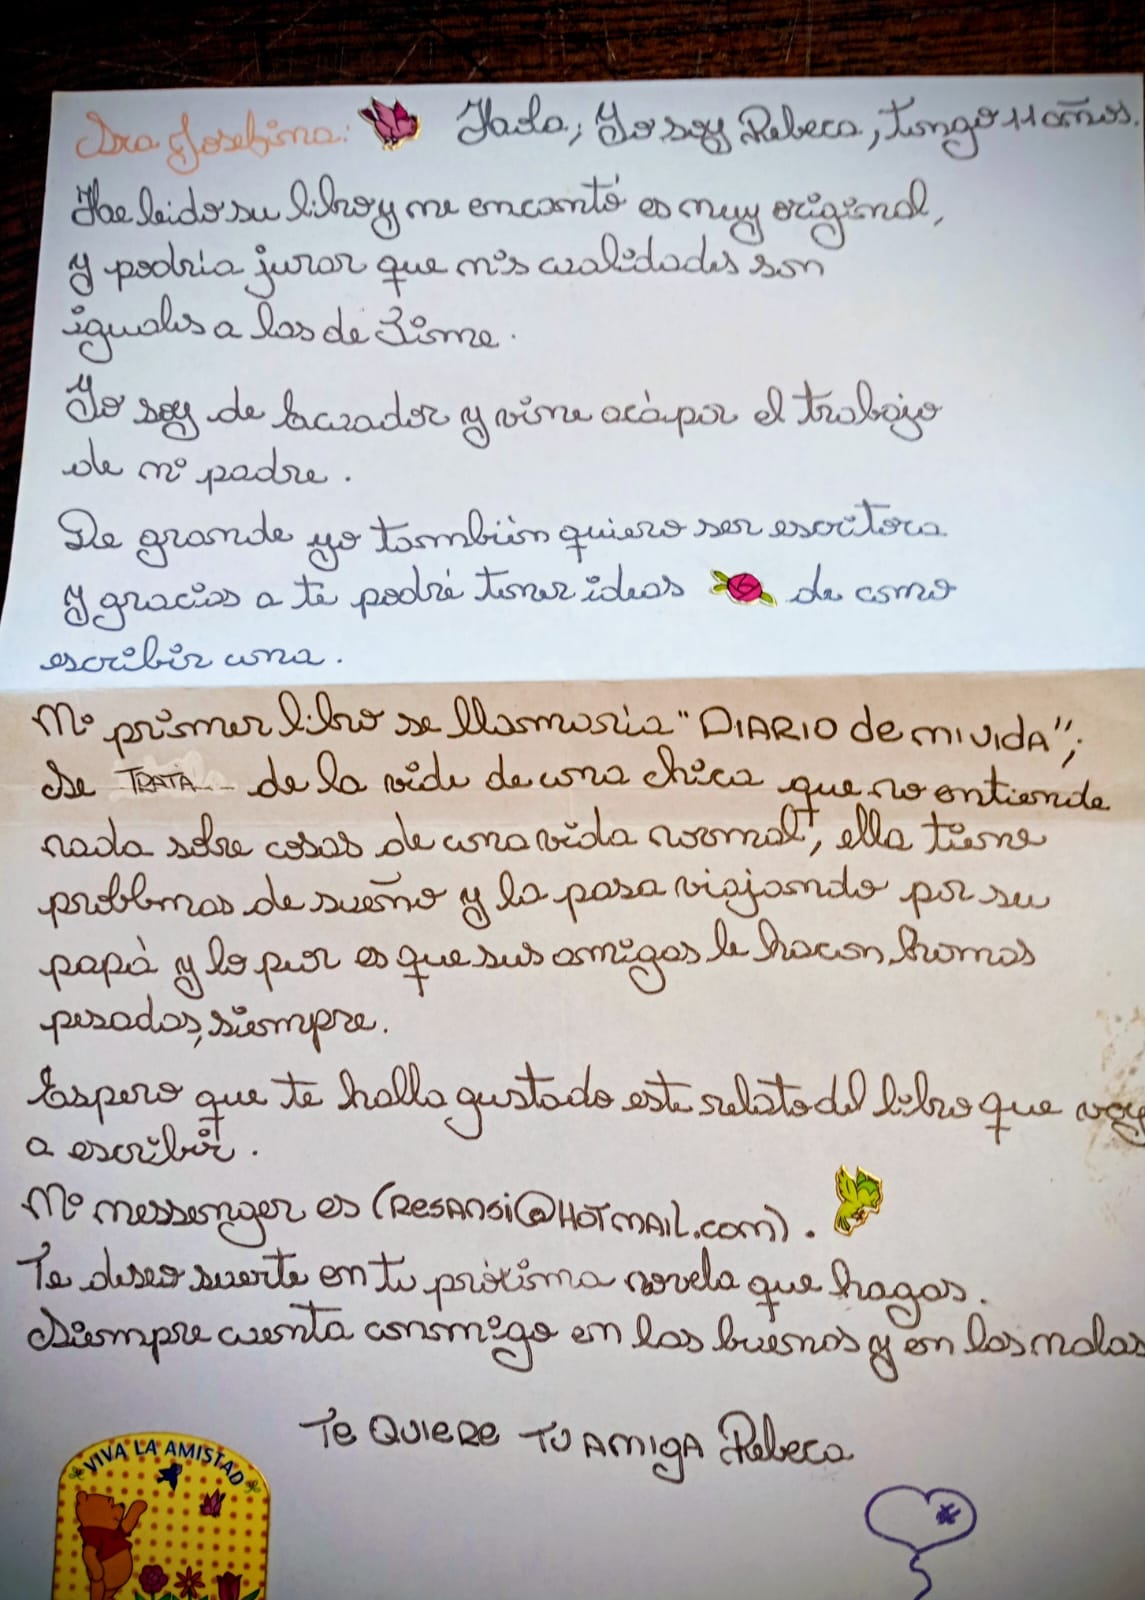 Sra Josefina: Hola, Yo soy Rebeca, tengo 11 años.
He leido su libro y me encantó es muy original,
y podría jurar que mis cualidades son
iguales a las de
Yo soy de Ecuador y vine acá por el trabajo
de mi padre.
De grande yo también quiero ser escritora
y gracias a te podré tener ideas de como
escribir una.
Mi primer libro se llamaría "DIARIO de mi vida";
Se TRATA de la vida de una chica que no entiende
nada sobre cosas de una vida normal, ella tiene
problemas de sueño y la pasa viajando por su
papá y lo peor es que sus amigas le hacen bromas
pesadas, siempre.
Espero que te halla gustado este relato del libro que voy
a escribir.
Mi messenger es (ResAnsi@HOTMAIL.com).
Te deseo suerte en tu próxima novela que hagas.
Siempre cuenta conmigo en las buenas y en las malas
Te QUIERE TU AMIGA Rebeca
VIVA LA AMISTAD